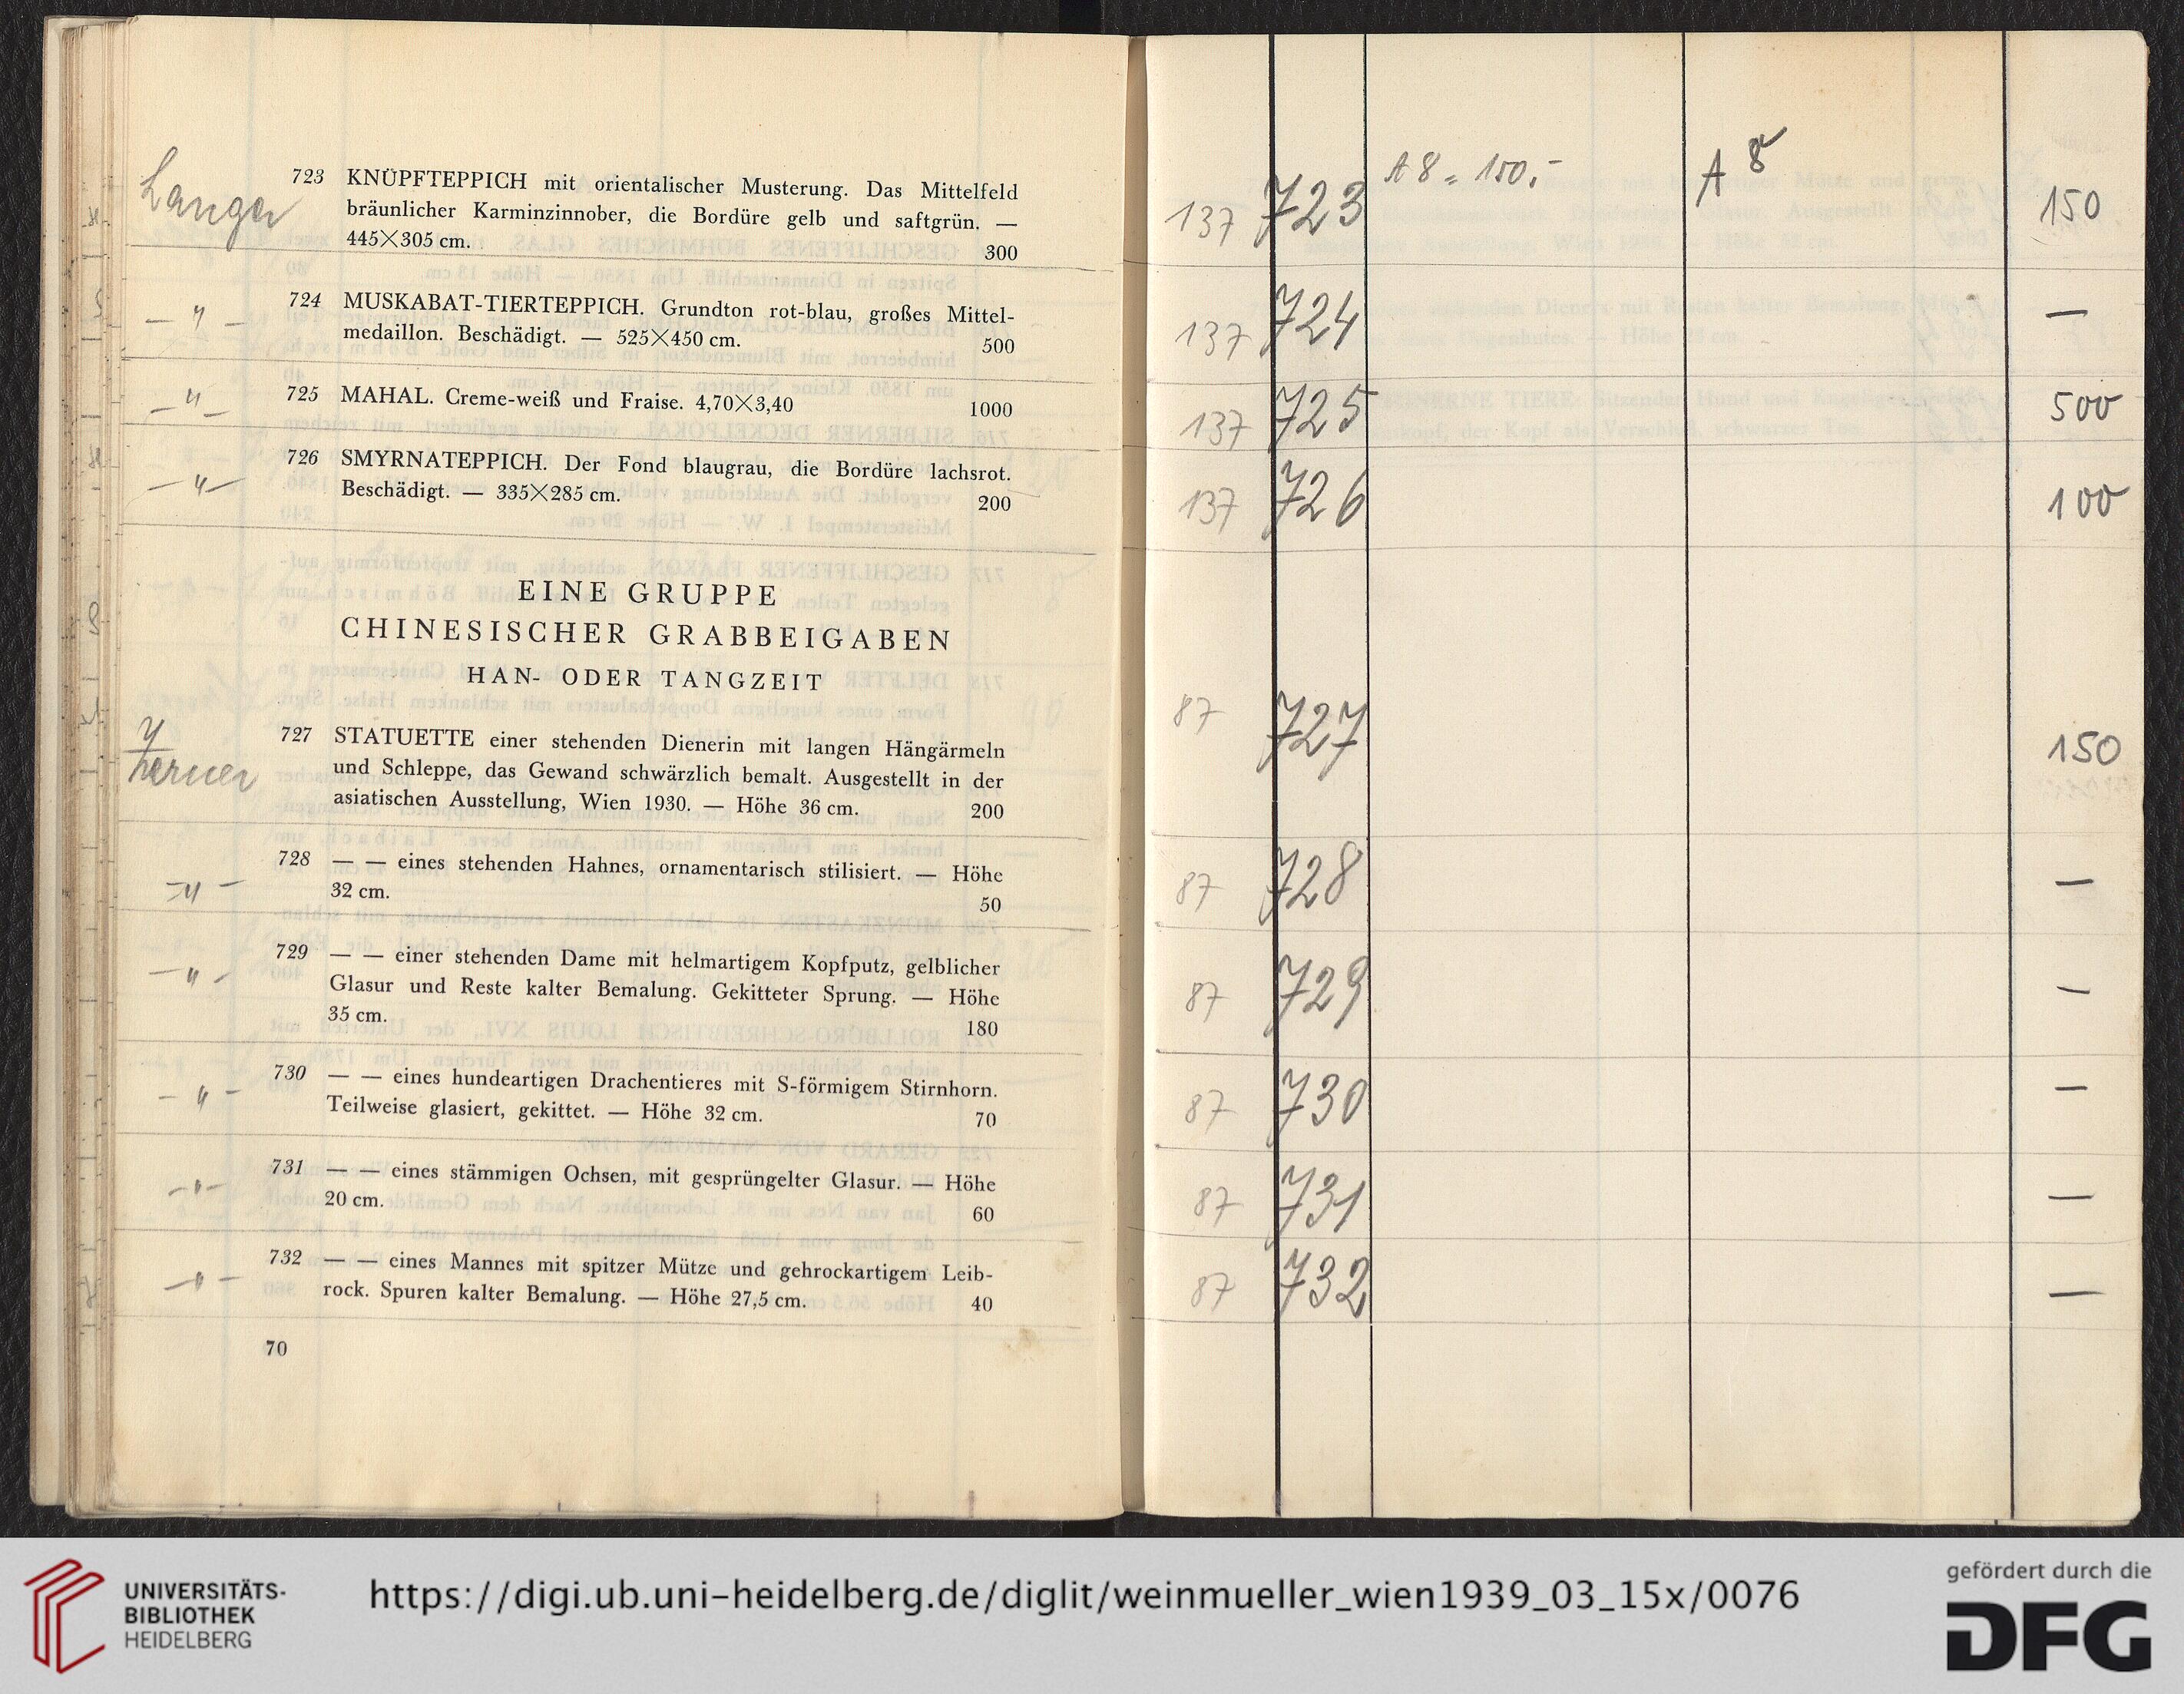 Langer
723 KNÜPFTEPPICH mit orientalischer Musterung. Das Mittelfeld
bräunlicher Karminzinnober, die Bordüre gelb und saftgrün. —
445×305 cm. 300
— " — 724 MUSKABAT-TIERTEPPICH. Grundton rot-blau, großes Mittel-
medaillon. Beschädigt. — 525×450 cm. 500
— " — 725 MAHAL. Creme-weiß und Fraise. 4,70×3,40 1000
— " — 726 SMYRNATEPPICH. Der Fond blaugrau, die Bordüre lachsrot.
Beschädigt. — 335×285 cm. 200
EINE GRUPPE
CHINESISCHER GRABBEIGABEN
HAN- ODER TANGZEIT
727 STATUETTE einer stehenden Dienerin mit langen Hängärmeln
und Schleppe, das Gewand schwärzlich bemalt. Ausgestellt in der
asiatischen Ausstellung, Wien 1930. — Höhe 36 cm. 200
— " — 728 — — eines stehenden Hahnes, ornamentarisch stilisiert. — Höhe
32 cm. 50
— " — 729 — — einer stehenden Dame mit helmartigem Kopfputz, gelblicher
Glasur und Reste kalter Bemalung. Gekitteter Sprung. — Höhe
35 cm. 180
— " — 730 — — eines hundeartigen Drachentieres mit S-förmigem Stirnhorn.
Teilweise glasiert, gekittet. — Höhe 32 cm. 70
— " — 731 — — eines stämmigen Ochsen, mit gesprüngelter Glasur. — Höhe
20 cm. 60
— " — 732 — — eines Mannes mit spitzer Mütze und gehrockartigem Leib-
rock. Spuren kalter Bemalung. — Höhe 27,5 cm. 40
70
137 723 A 8 = 150.- A 8 150
137 724 —
137 725 500
137 726 100
87 727 150
87 728 —
87 729 —
87 730 —
87 731 —
87 732 —
UNIVERSITÄTS-
BIBLIOTHEK
HEIDELBERG
https://digi.ub.uni-heidelberg.de/diglit/weinmueller_wien1939_03_15x/0076
gefördert durch die
DFG